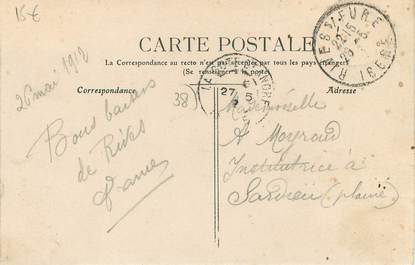 15€
CARTE POSTALE
La Correspondance au recto n'est pas acceptée par tous les pays étrangers
(Se renseigner à la poste)
Correspondance
Adresse
RIVES S/ FURE
ISERE
27
38
26 mai 1912
Bons baisers
de Rives
Mademoiselle
A Meyraud
Institutrice à
Sardieu (plaine)